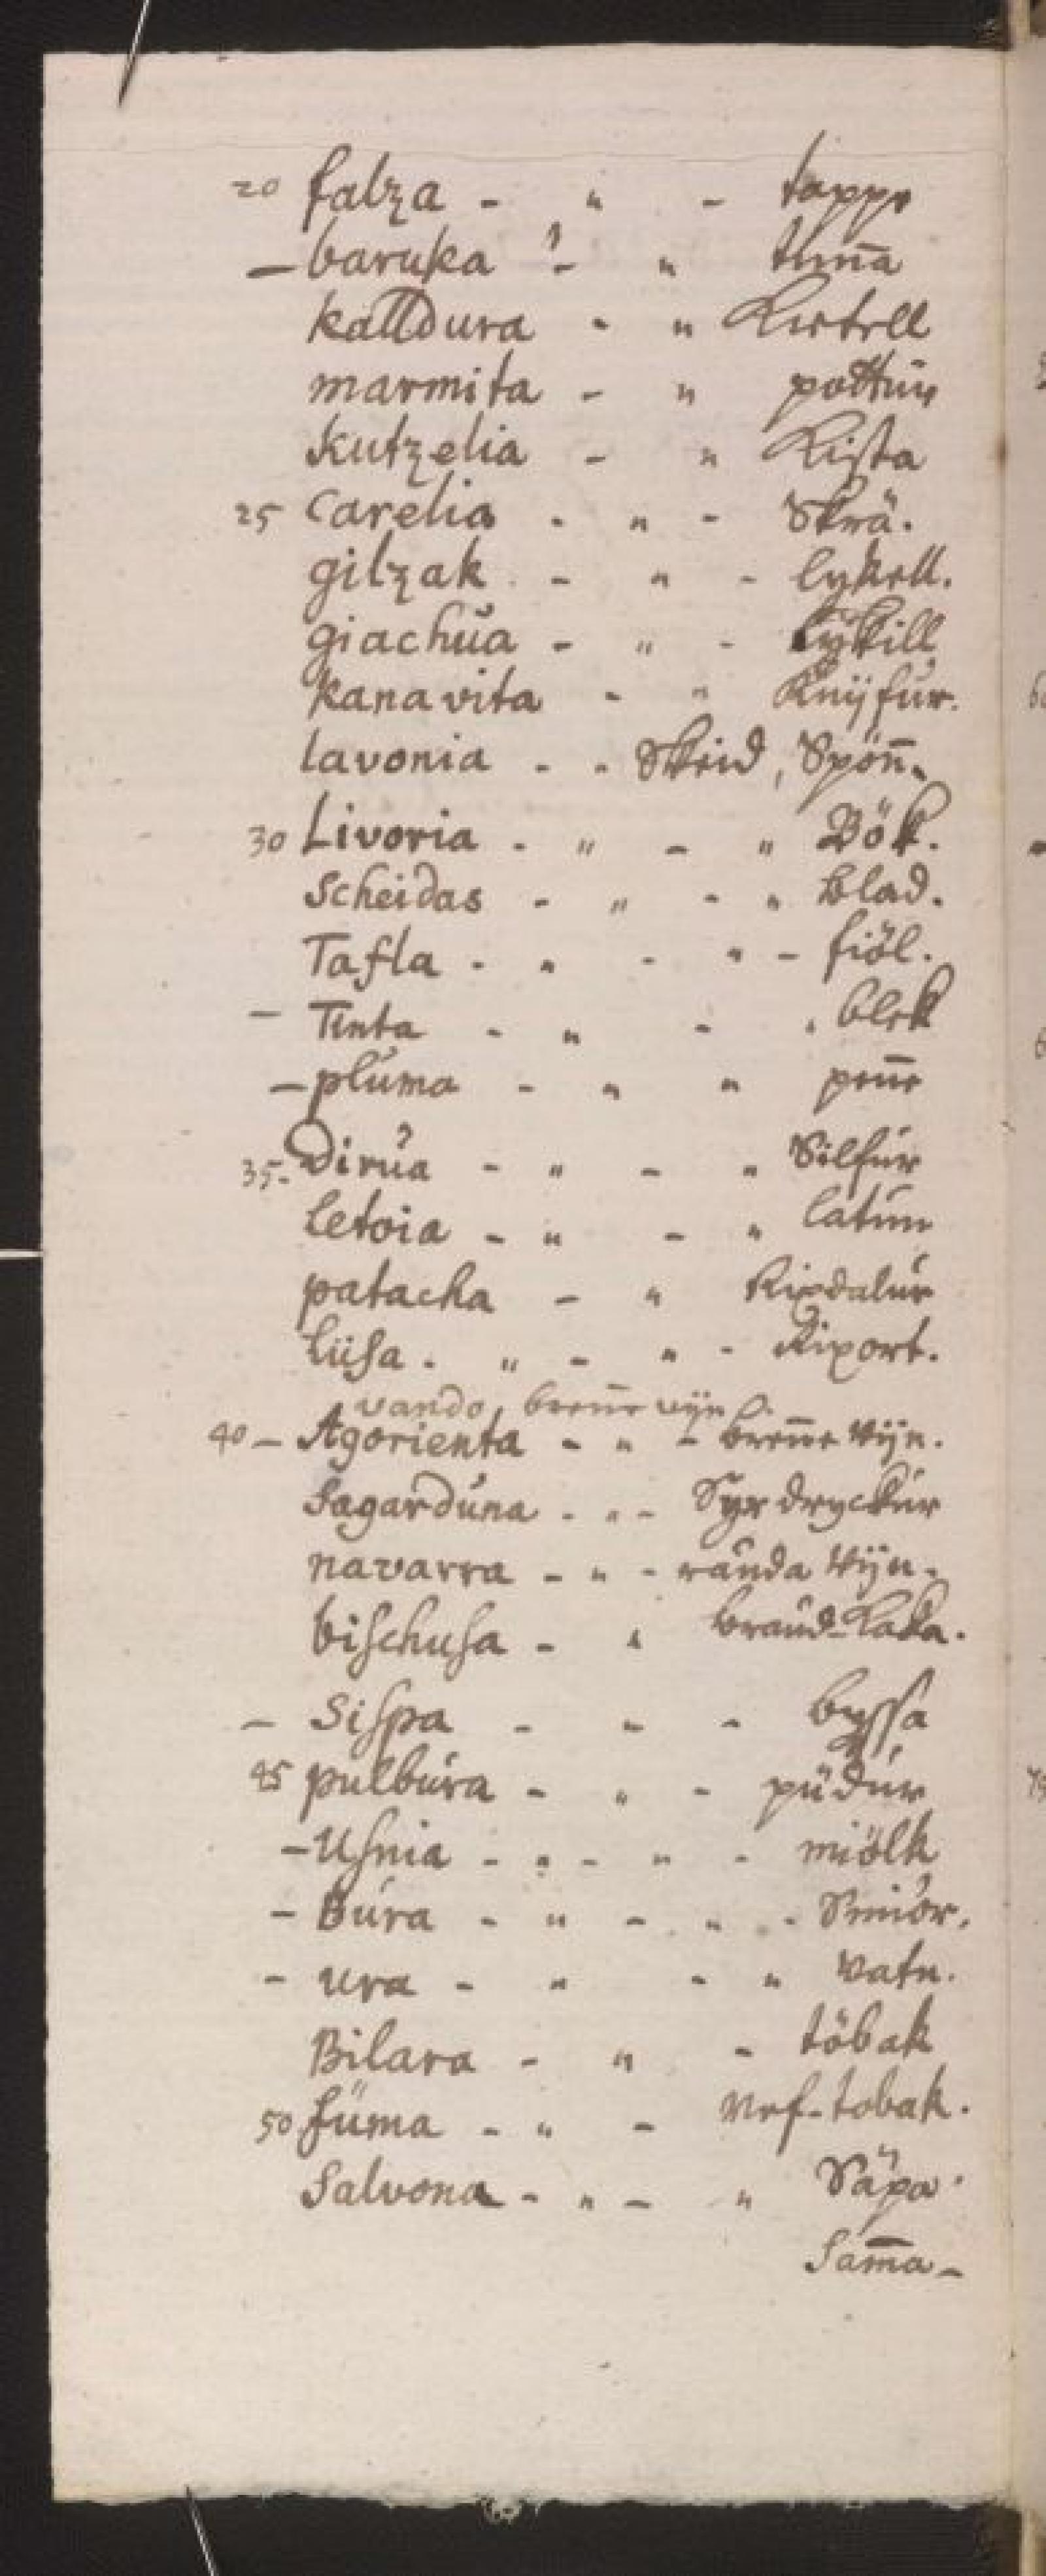 20 falza - " - tappe
- baruka - " tunna
kalldura - " Kietell
marmita - " pottur
kutzelia - " Kista
25 Carelia - " - Skrä.
gilzak - " - lykell.
giachúa - " - lykill
kanavita - " Knijfur.
lavonia - - Skeid, Spón̄.
30 Livoria - " - " Bök.
Scheidas - " - " blad.
Tafla - " - " - fiöl.
- Tinta - " - " blek
- pluma - " " penne
35 - Dirúa - " - " Silfúr
Letoia - " - " latún
patacha - " Rixdalúr
Liisa - " - " - Rixort.
vando, bren̄e vijn
40 - Agorienta - " - bren̄e vijn.
Sagarduna - " - Syr dryckúr
navarra - " - rauda vijn.
bischusa - " braud-kaka.
- Sispa - " - byssa
45 pulbúra - " - púdúr
- Usnia - " - " - miölk
- Búra - " - " - Smiör.
- ura - " - " vatn.
Bilara - " - töbak
50 fúma - " - nef-tobak.
Salvona - " - " Säpa.
Sam̄a -